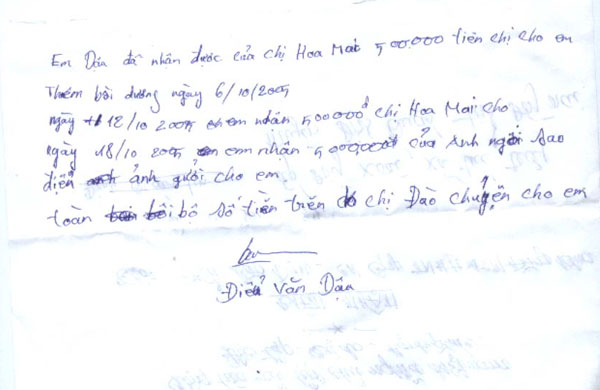 Em Dậu đã nhân được của chị Hoa Mai 500.000 tiền chị cho em
Thêm bồi dưỡng ngày 6/10/2005
ngày 12/10 2005 em nhận 500000đ chị Hoa Mai cho
ngày 18/10 2005 em nhân 500,000đ của Anh ngôi sao
điển ảnh gưởi cho em
toàn bộ số tiền trên chị Đào chuyển cho em
Điểu Văn Dậu